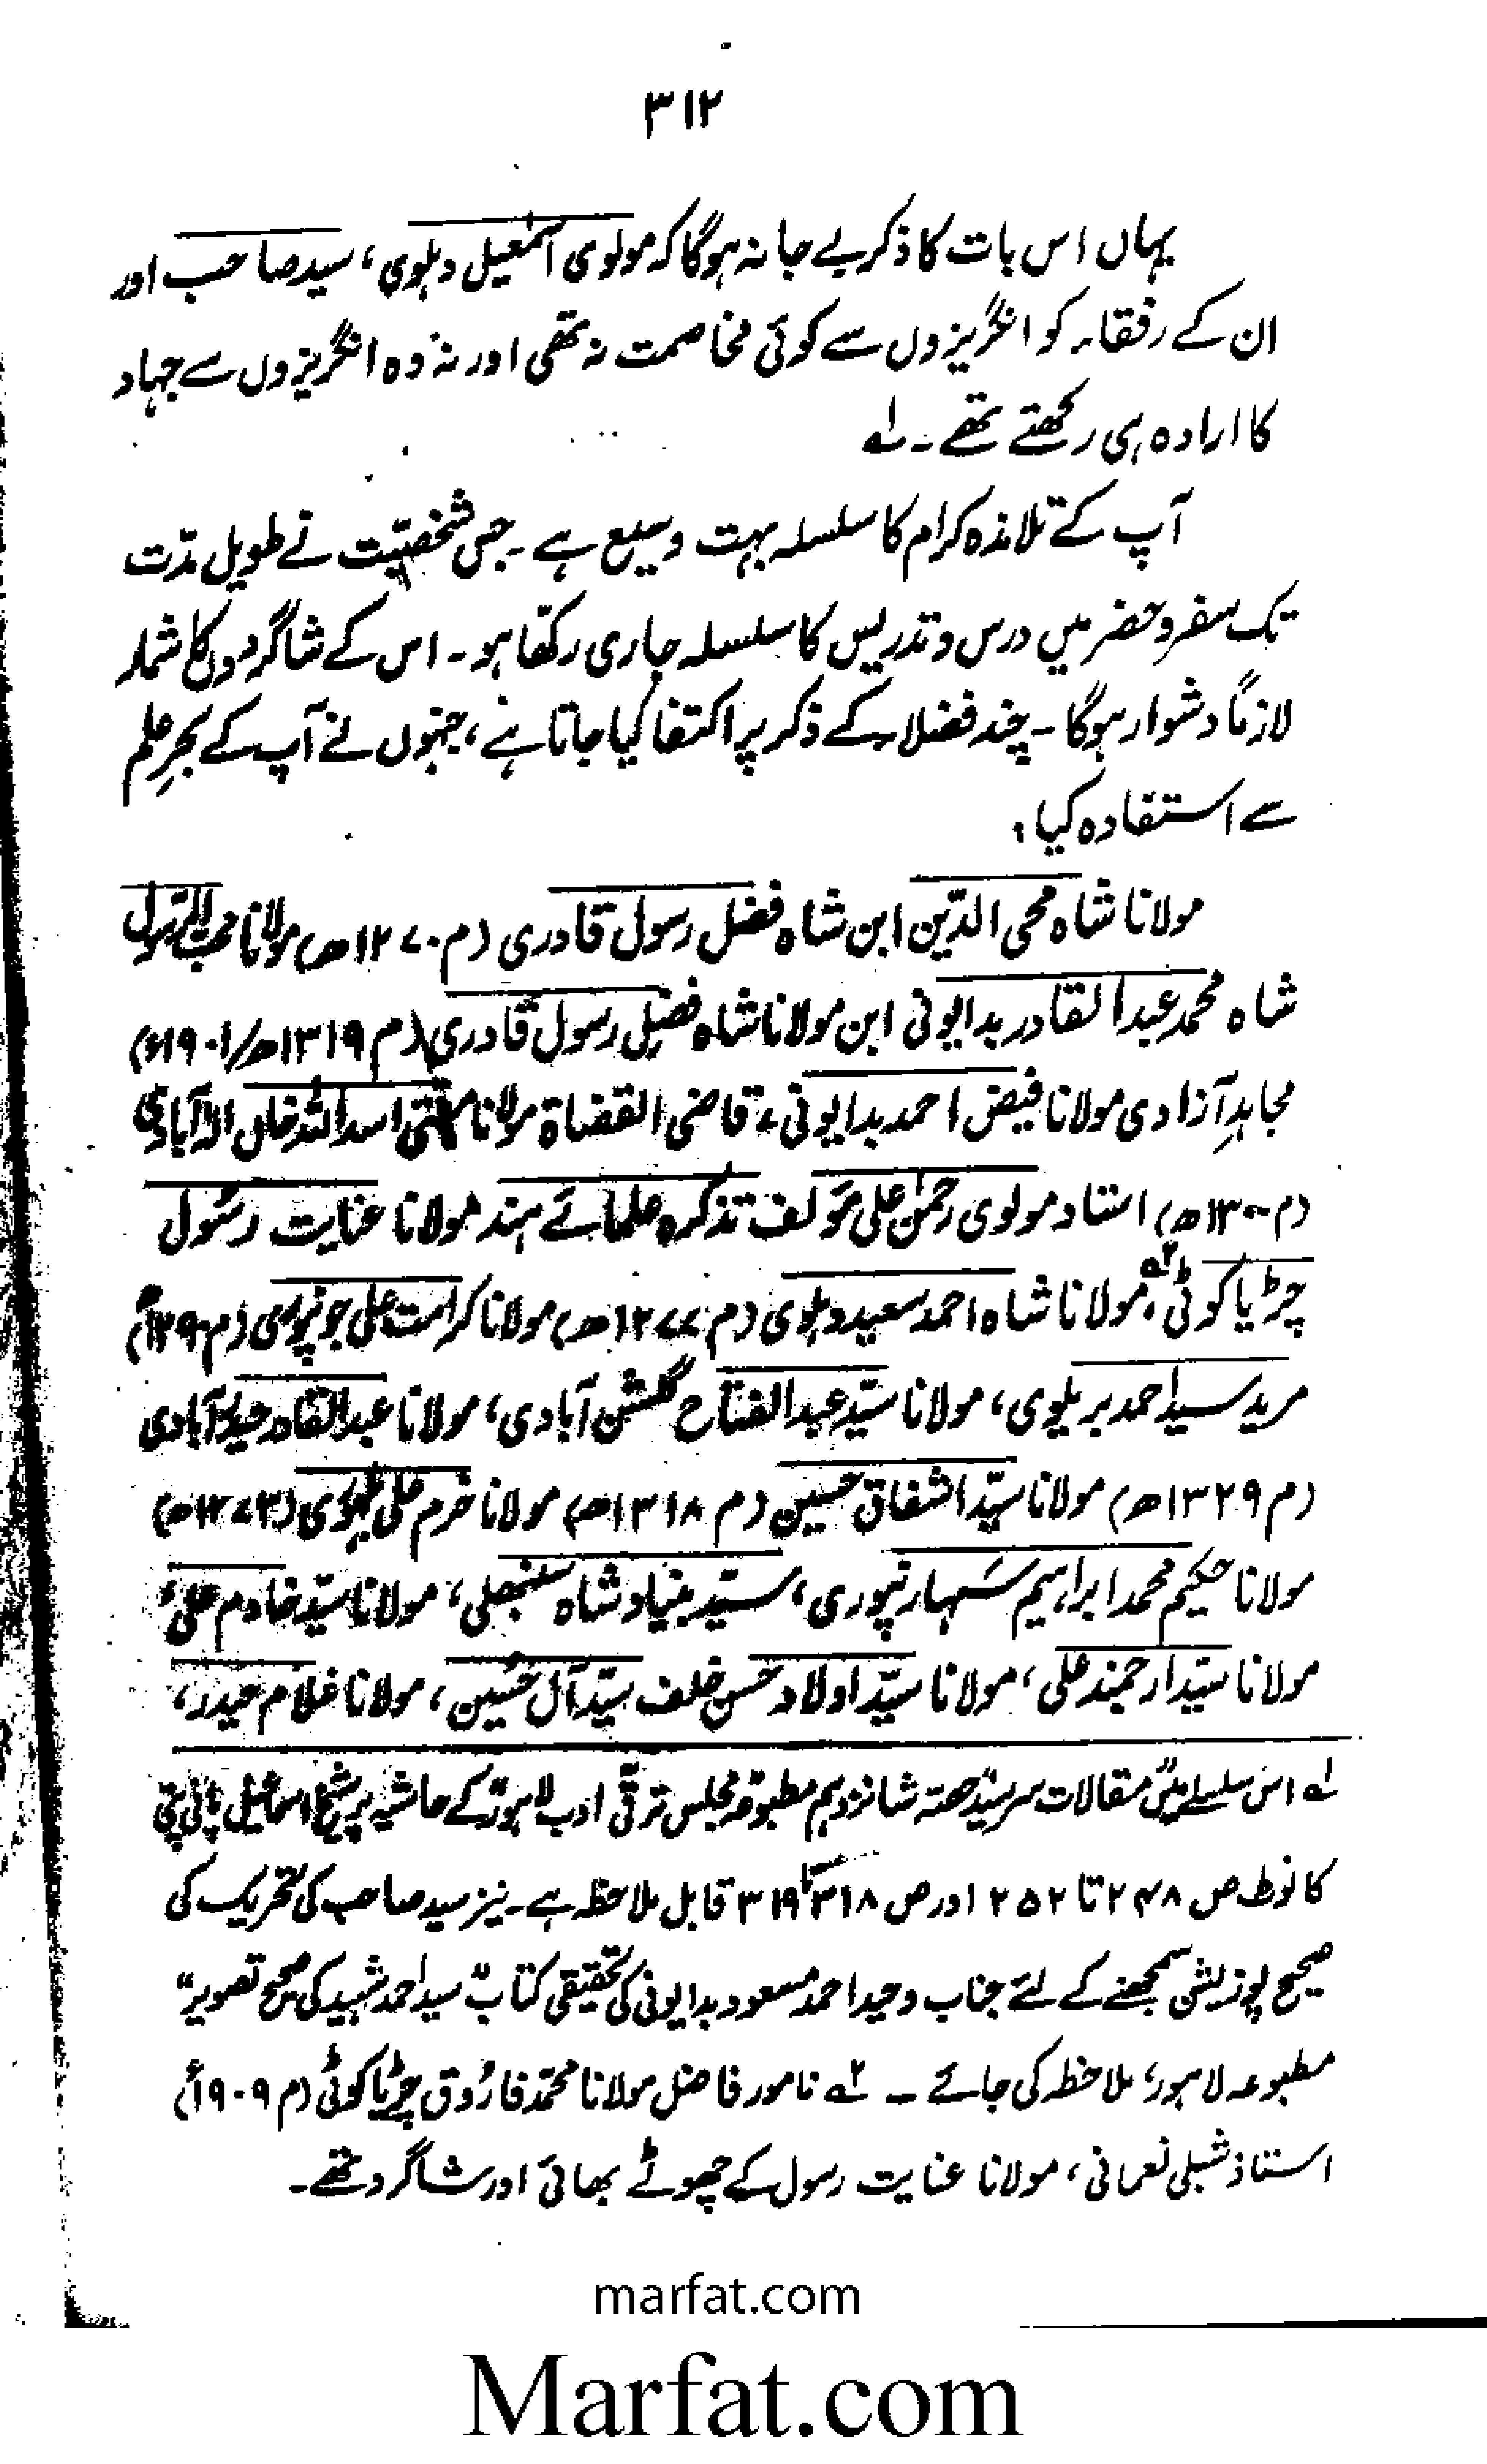 ۳۱۲
یہاں اس بات کا ذکر بے جا نہ ہوگا کہ مولوی اسمٰعیل دہلوی، سید صاحب اور
ان کے رفقاء کو انگریزوں سے کوئی مخاصمت نہ تھی اور نہ وہ انگریزوں سے جہاد
کا ارادہ ہی رکھتے تھے۔ لہ
آپ کے تلامذہ کرام کا سلسلہ بہت وسیع ہے۔ جس شخصیّت نے طویل مدّت
تک سفر و حضر میں درس و تدریس کا سلسلہ جاری رکھّا ہو۔ اس کے شاگردوں کا شمار
لازماً دشوار ہوگا۔ چند فضلاء کے ذکر پر اکتفا کیا جاتا ہے، جنہوں نے آپ کے بحرِ علم
سے استفادہ کیا:
مولانا شاہ محی الدّین ابن شاہ فضل رسول قادری (م ۱۲۷۰ھ) مولانا محب الرّسول
شاہ محمد عبدالقادر بدایونی ابن مولانا شاہ فضل رسول قادری (م ۱۳۱۹ھ/۱۹۰۱ء)
مجاہدِ آزادی مولانا فیض احمد بدایونی، قاضی القضاۃ مولانا مفتی اسد اللہ خاں الہ آبادی
(م ۱۳۰۰ھ) استاد مولوی رحمٰن علی مؤلف تذکرہ علمائے ہند مولانا عنایت رسُول
چڑیا کوٹی ۲ہ، مولانا شاہ احمد سعید دہلوی (م ۱۲۷۷ھ) مولانا کرامت علی جونپوری (م ۱۲۹۰ھ)
مرید سید احمد بریلوی، مولانا سیّد عبدالفتاح گلشن آبادی، مولانا عبدالقادر حیدر آبادی
(م ۱۳۲۹ھ) مولانا سیّد اشفاق حسین (م ۱۳۱۸ھ) مولانا خرم علی بلہوری (۱۲۷۳ھ)
مولانا حکیم محمد ابراہیم سَہارنپوری، سیّد بنیاد شاہ سنبھلی، مولانا سیّد خادم علی،
مولانا سیّد ارجمند علی، مولانا سیّد اولاد حسن خلف سیّد آل حُسین، مولانا غلام حیدر،
لہ اس سلسلے میں مقالات سر سیّد حصہ شانزدہم مطبوعہ مجلس ترقّی ادب لاہور کے حاشیہ پر شیخ اسماعیل پانی پتی
کا نوٹ ص ۲۴۸ تا ۲۵۲ اور ص ۳۱۸ تا ۳۱۹ قابل ملاحظہ ہے۔ نیز سید صاحب کی تحریک کی
صحیح پوزیشن سمجھنے کے لئے جناب وحید احمد مسعود بدایونی کی تحقیقی کتاب "سید احمد شہید کی صحیح تصویر"
مطبوعہ لاہور، ملاحظہ کی جائے ۔ ۲ہ نامور فاضل مولانا محمّد فارُوق چڑیا کوٹی (م ۱۹۰۹ء)
استاذ شبلی نعمانی، مولانا عنایت رسول کے چھوٹے بھائی اور شاگرد تھے۔
marfat.com
Marfat.com